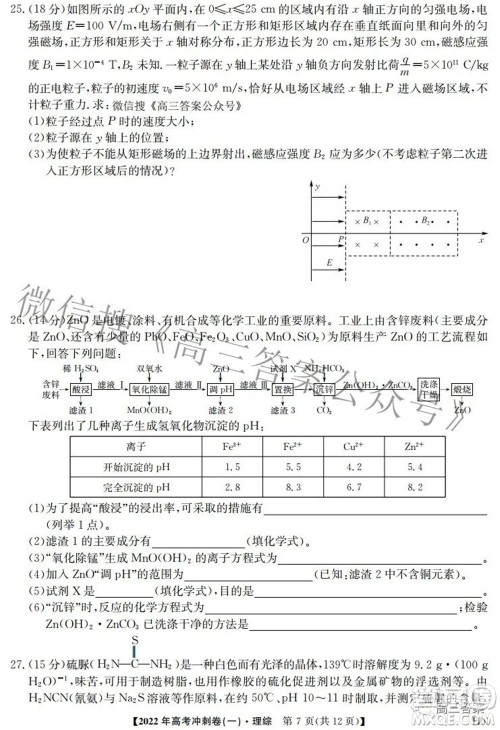 25.(18分)如图所示的xOy平面内,在0≤x≤25 cm的区域内有沿x轴正方向的匀强电场,电
场强度E=100 V/m,电场右侧有一个正方形和矩形区域内存在垂直纸面向里和向外的匀
强磁场,正方形和矩形关于x轴对称分布,正方形边长为20 cm,矩形长为30 cm,磁感应强
度B₁=1×10⁻⁴ T,B₂未知.一粒子源在y轴上某处沿y轴负方向发射比荷q/m=5×10¹¹ C/kg
的正电粒子,粒子的初速度v₀=5×10⁶ m/s,恰好从电场区域经x轴上P进入磁场区域,不
计粒子重力.求:微信搜《高三答案公众号》
(1)粒子经过点P时的速度大小;
(2)粒子源在y轴上的位置;
(3)为使粒子不能从矩形磁场的上边界射出,磁感应强度B₂应为多少(不考虑粒子第二次进
入正方形区域后的情况)?
y
× B₁ × • • B₂ • •
O P x
× × • • • •
E
26.(14分)ZnO是电镀、涂料、有机合成等化学工业的重要原料。工业上由含锌废料(主要成分
是ZnO,还含有少量的PbO、FeO、Fe₂O₃、CuO、MnO、SiO₂)为原料生产ZnO的工艺流程如
下,回答下列问题:
稀H₂SO₄ 双氧水 ZnO 试剂X NH₄HCO₃
含锌废料 酸浸 滤液Ⅰ 氧化除锰 滤液Ⅱ 调pH 滤液Ⅲ 置换 沉锌 Zn(OH)₂•ZnCO₃ 洗涤干燥 煅烧
滤渣1 MnO(OH)₂ 滤渣2 滤渣3 CO₂ ZnO
下表列出了几种离子生成氢氧化物沉淀的pH:
离子 Fe³⁺ Fe²⁺ Cu²⁺ Zn²⁺
开始沉淀的pH 1.5 5.5 4.2 5.4
完全沉淀的pH 2.8 8.3 6.7 8.2
(1)为了提高“酸浸”的浸出率,可采取的措施有
(列举1点)。
(2)滤渣1的主要成分有 (填化学式)。
(3)“氧化除锰”生成MnO(OH)₂的离子方程式为 。
(4)加入ZnO“调pH”的范围为 (已知:滤渣2中不含铜元素)。
(5)试剂X是 (填化学式),目的是 。
(6)“沉锌”时,反应的化学方程式为 ;检验
Zn(OH)₂•ZnCO₃已洗涤干净的方法是 。
S
27.(15分)硫脲(H₂N—C—NH₂)是一种白色而有光泽的晶体,139℃时溶解度为9.2 g•(100 g
H₂O)⁻¹,味苦,可用于制造药物,也可用作橡胶的硫化促进剂以及金属矿物的浮选剂等。用
H₂NCN(氰氨)与Na₂S溶液反应制备,在约50℃、pH 10~11时制取。
【2022年高考冲刺卷(一)•理综 第7页(共12页)】
微信搜《高三答案公众号》